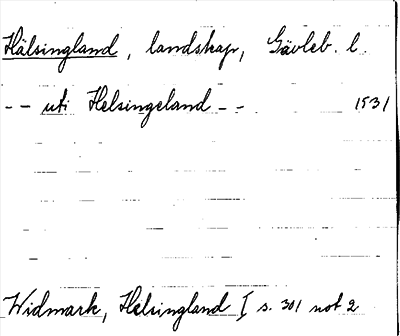 Hälsingland, landskap, Gävleb. l.
-- uti Helsingeland -- 1531
Widmark, Helsingland I s. 301 not 2